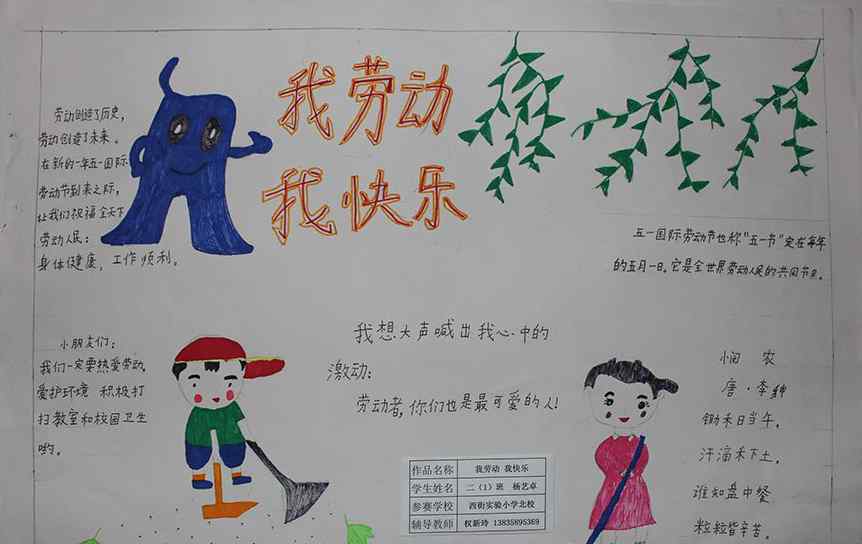 我劳动
我快乐
劳动创造了历史，
劳动创造了未来。
在新的一年五一国际
劳动节到来之际，
让我们祝福全天下
劳动人民：
身体健康，工作顺利。
五一国际劳动节也称“五一节”定在每年
的五月一日。它是全世界劳动人民的共同节日。
小朋友们：
我们一定要热爱劳动。
爱护环境 积极打
扫教室和校园卫生
哟。
我想大声喊出我心中的
激动：
劳动者，你们也是最可爱的人！
悯 农
唐·李绅
锄禾日当午，
汗滴禾下土，
谁知盘中餐
粒粒皆辛苦。
作品名称 我劳动 我快乐
学生姓名 二（1）班 杨艺卓
参赛学校 西街实验小学北校
辅导教师 权新玲 13835895369